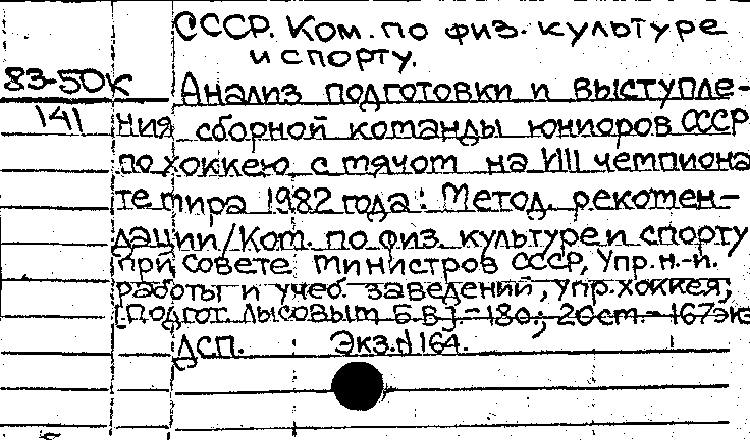 СССР. Ком. по физ. культуре
и спорту.
83-50К
Анализ подготовки и выступле-
141
ния сборной команды юниоров СССР
по хоккею с мячом на VIII чемпиона
те мира 1982 года: Метод. рекомен-
дации/Ком. по физ. культуре и спорту
при Совете Министров СССР, Упр. н.-и.
работы и учеб. заведений, упр. хоккея;
[Подгот. Лысовым Б.В]. - 180; 20см. - 167экз
ДСП. Экз.N164.